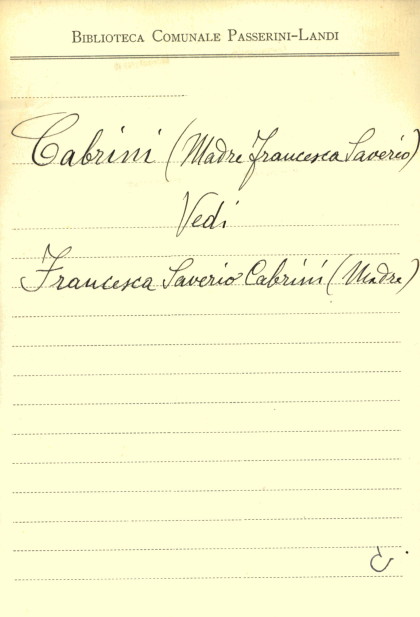 BIBLIOTECA COMUNALE PASSERINI-LANDI
Cabrini (Madre Francesca Saverio)
Vedi
Francesca Saverio Cabrini (Madre)